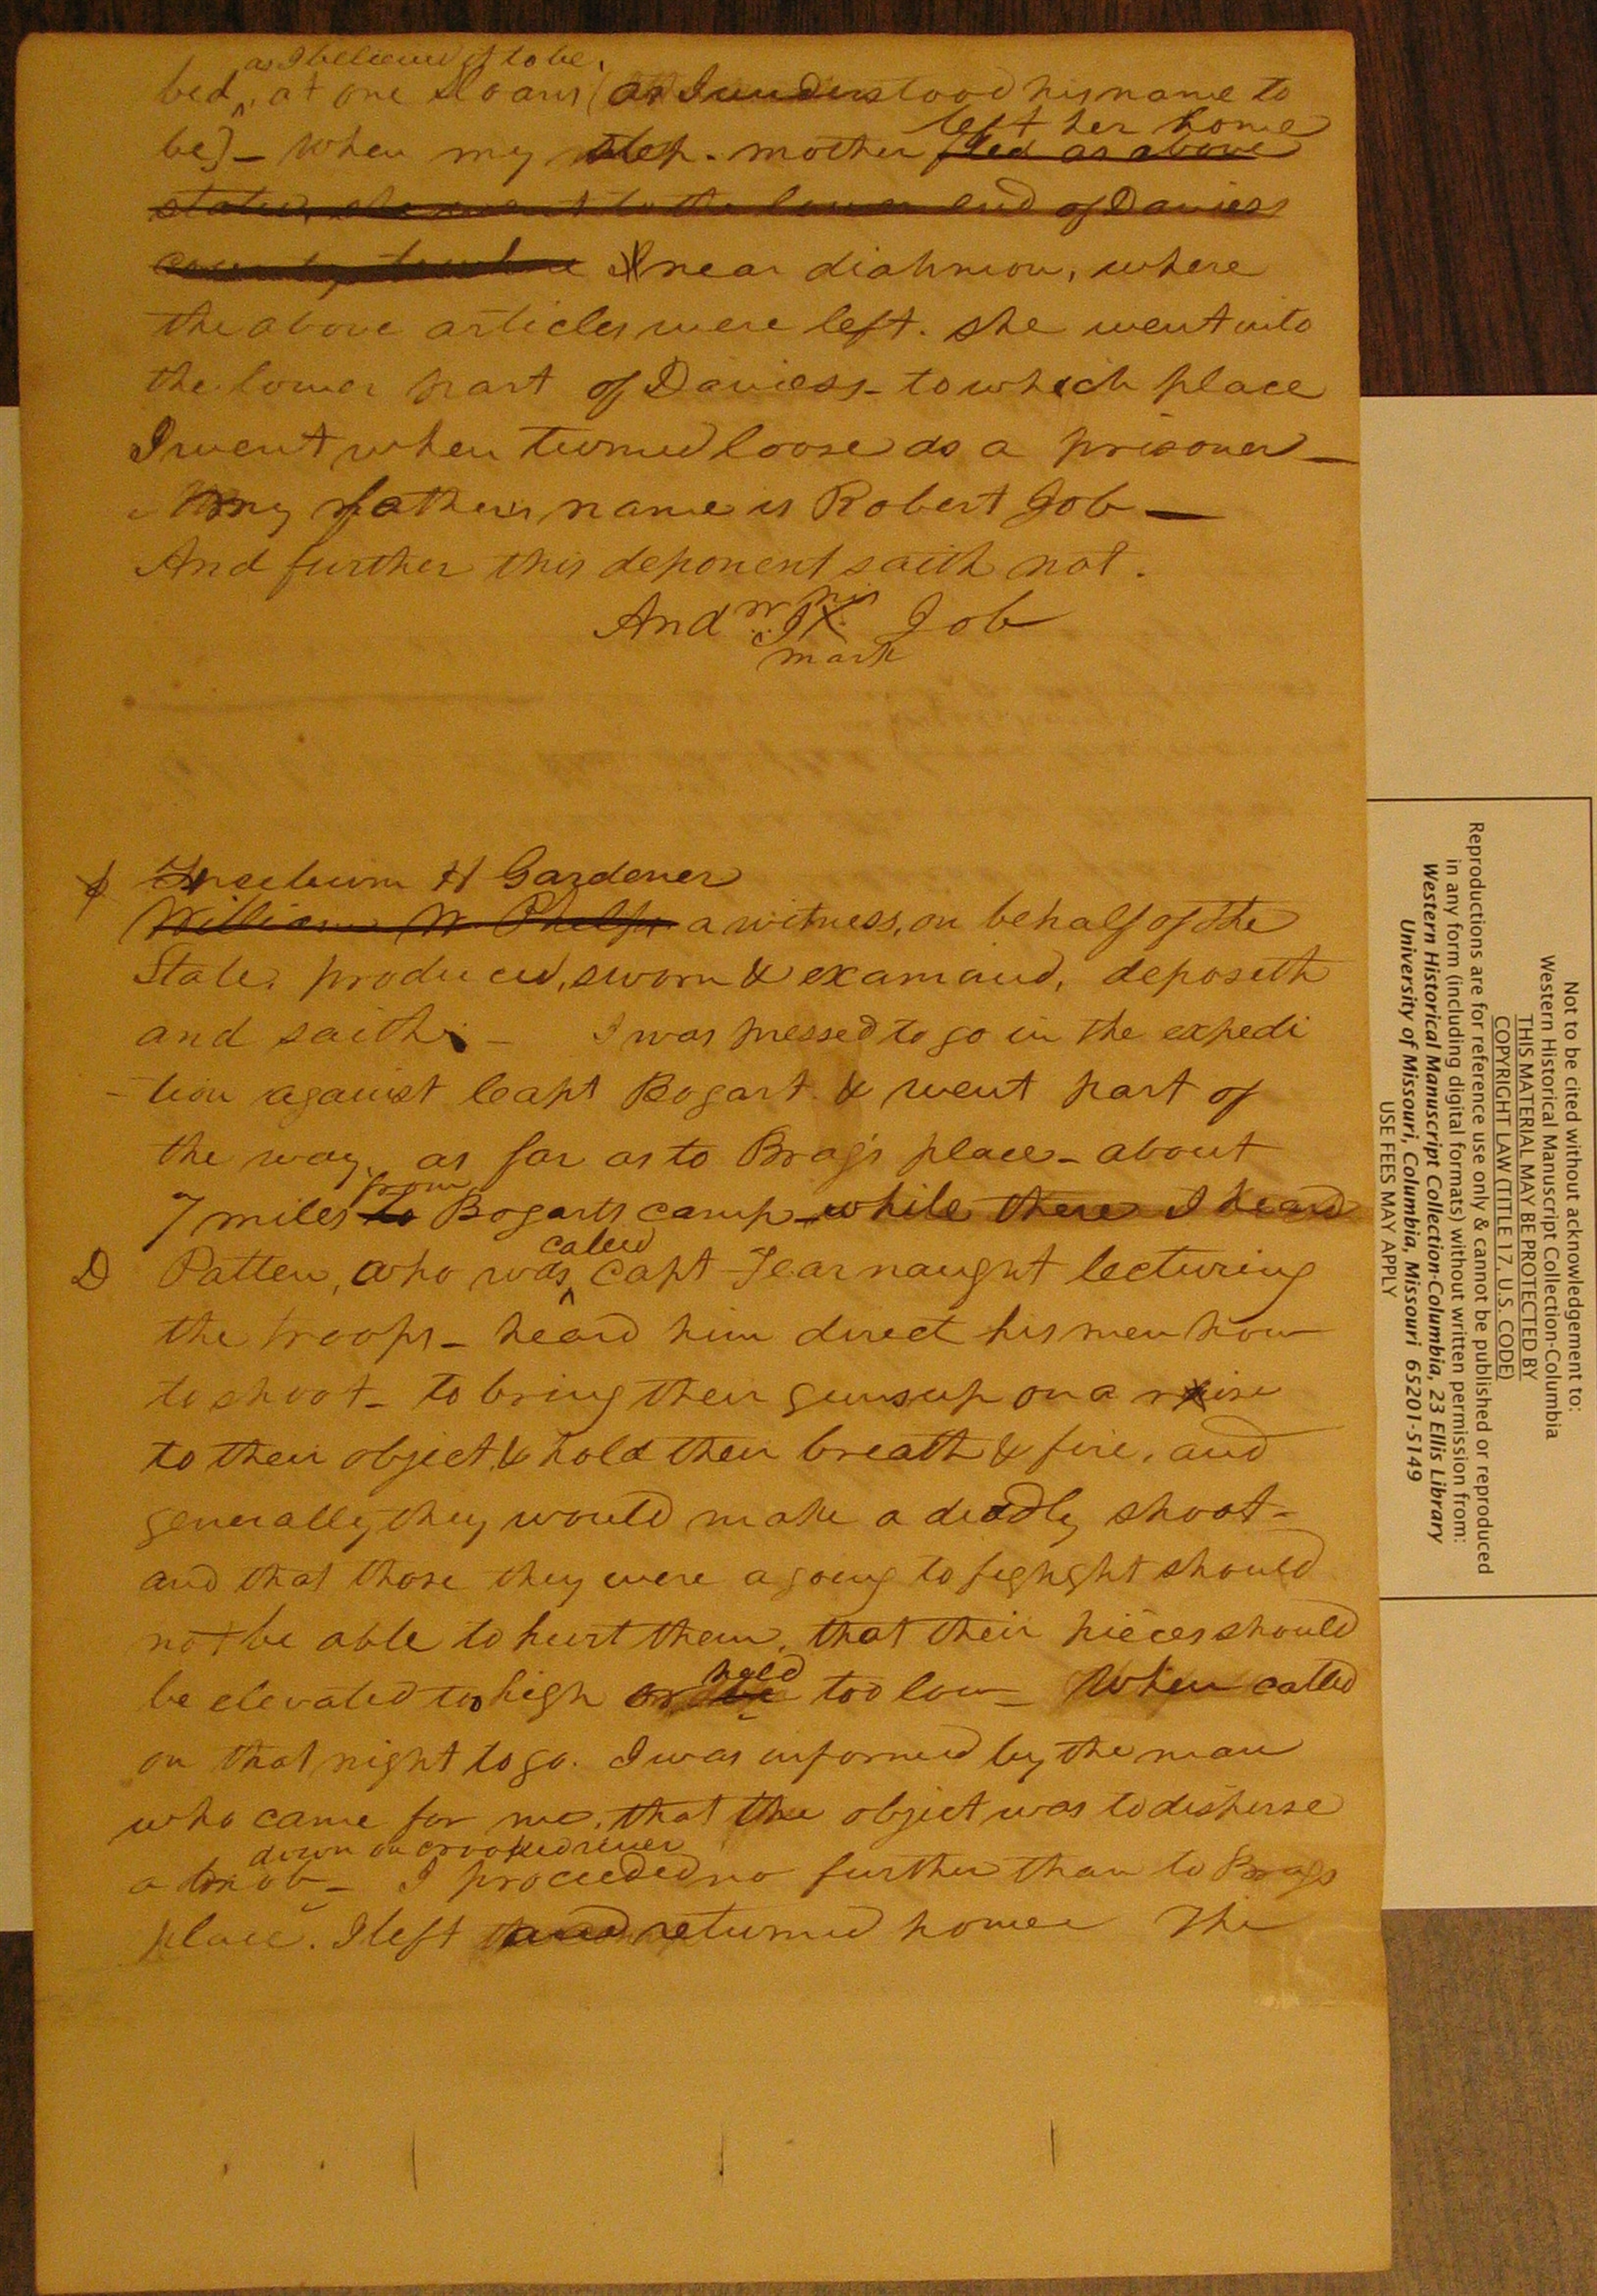 as I believed it to be,
bed, at one Sloans (as I understood his name to
be) - When my step-mother fled as above
left her home
stated, she went to the lower end of Daviess
county, to where near diahmon, where
the above articles were left. she went into
the lower part of Daviess - to which place
I went when turned loose as a prisoner -
My fathers name is Robert Job -
And further this deponent saith not.
Andw his Job
X
mark
Freeburn H Gardener
William W. Phelps a witness, on behalf of the
State, produced, sworn & examined, deposeth
and saith: - I was pressed to go in the expedi
-tion against Capt Bogart & went part of
the way, as far as to Brag's place - about
from
7 miles to Bogarts camp - while there I heard
called
D Patten, who was capt Fearnaught lecturing
the troops - heard him direct his men how
to shoot - to bring their guns up on a rise
to their object, & hold their breath & fire, and
generally they would make a deadly shoot -
and that those they were a going to fighght should
not be able to hurt them, that their pieces should
held
be elevated too high or be too low - When called
on that night to go. I was informed by the man
who came for me, that the object was to disperse
down on crooked river
a mob - I proceeded no further than to Brags
place. I left and returned home The
Not to be cited without acknowledgement to:
Western Historical Manuscript Collection-Columbia
THIS MATERIAL MAY BE PROTECTED BY
COPYRIGHT LAW (TITLE 17, U.S. CODE)
Reproductions are for reference use only & cannot be published or reproduced
in any form (including digital formats) without written permission from:
Western Historical Manuscript Collection-Columbia, 23 Ellis Library
University of Missouri, Columbia, Missouri 65201-5149
USE FEES MAY APPLY